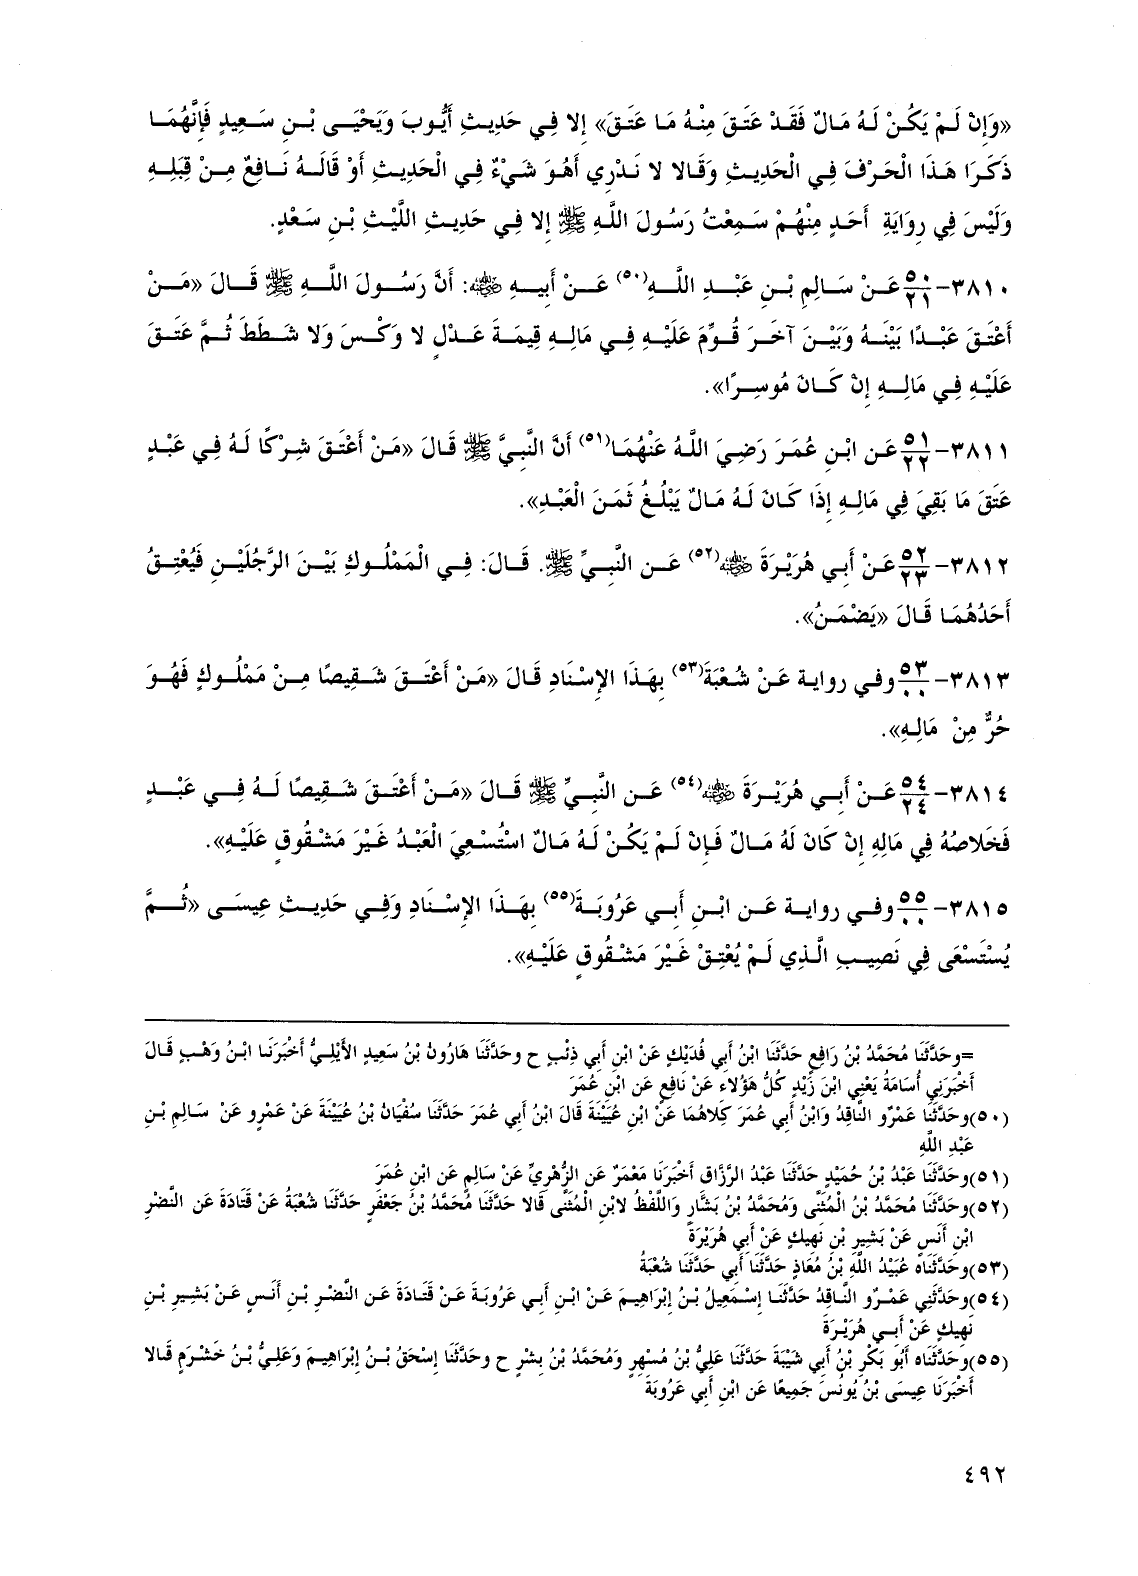 «وَإِنْ لَمْ يَكُنْ لَهُ مَالٌ فَقَدْ عَتَقَ مِنْهُ مَا عَتَقَ» إِلا فِي حَدِيثِ أَيُّوبَ وَيَحْيَى بْنِ سَعِيدٍ فَإِنَّهُمَا
ذَكَرَا هَذَا الْحَرْفَ فِي الْحَدِيثِ وَقَالا لا نَدْرِي أَهُوَ شَيْءٌ فِي الْحَدِيثِ أَوْ قَالَهُ نَافِعٌ مِنْ قِبَلِهِ
وَلَيْسَ فِي رِوَايَةِ أَحَدٍ مِنْهُمْ سَمِعْتُ رَسُولَ اللَّهِ ﷺ إِلا فِي حَدِيثِ اللَّيْثِ بْنِ سَعْدٍ.
٣٨١٠- ٥٠/٢١ عَنْ سَالِمِ بْنِ عَبْدِ اللَّهِ(٥٠) عَنْ أَبِيهِ ﵁: أَنَّ رَسُولَ اللَّهِ ﷺ قَالَ «مَنْ
أَعْتَقَ عَبْدًا بَيْنَهُ وَبَيْنَ آخَرَ قُوِّمَ عَلَيْهِ فِي مَالِهِ قِيمَةَ عَدْلٍ لا وَكْسَ وَلا شَطَطَ ثُمَّ عَتَقَ
عَلَيْهِ فِي مَالِهِ إِنْ كَانَ مُوسِرًا».
٣٨١١- ٥١/٢٢ عَنِ ابْنِ عُمَرَ رَضِيَ اللَّهُ عَنْهُمَا(٥١) أَنَّ النَّبِيَّ ﷺ قَالَ «مَنْ أَعْتَقَ شِرْكًا لَهُ فِي عَبْدٍ
عَتَقَ مَا بَقِيَ فِي مَالِهِ إِذَا كَانَ لَهُ مَالٌ يَبْلُغُ ثَمَنَ الْعَبْدِ».
٣٨١٢- ٥٢/٢٣ عَنْ أَبِي هُرَيْرَةَ ﵁(٥٢) عَنِ النَّبِيِّ ﷺ. قَالَ: فِي الْمَمْلُوكِ بَيْنَ الرَّجُلَيْنِ فَيُعْتِقُ
أَحَدُهُمَا قَالَ «يَضْمَنُ».
٣٨١٣- ٥٣/٠٠ وفي رواية عَنْ شُعْبَةَ(٥٣) بِهَذَا الإِسْنَادِ قَالَ «مَنْ أَعْتَقَ شَقِيصًا مِنْ مَمْلُوكٍ فَهُوَ
حُرٌّ مِنْ مَالِهِ».
٣٨١٤- ٥٤/٢٤ عَنْ أَبِي هُرَيْرَةَ ﵁(٥٤) عَنِ النَّبِيِّ ﷺ قَالَ «مَنْ أَعْتَقَ شَقِيصًا لَهُ فِي عَبْدٍ
فَخَلاصُهُ فِي مَالِهِ إِنْ كَانَ لَهُ مَالٌ فَإِنْ لَمْ يَكُنْ لَهُ مَالٌ اسْتُسْعِيَ الْعَبْدُ غَيْرَ مَشْقُوقٍ عَلَيْهِ».
٣٨١٥- ٥٥/٠٠ وفي رواية عَنِ ابْنِ أَبِي عَرُوبَةَ(٥٥) بِهَذَا الإِسْنَادِ وَفِي حَدِيثِ عِيسَى «ثُمَّ
يُسْتَسْعَى فِي نَصِيبِ الَّذِي لَمْ يُعْتِقْ غَيْرَ مَشْقُوقٍ عَلَيْهِ».
=وحَدَّثَنَا مُحَمَّدُ بْنُ رَافِعٍ حَدَّثَنَا ابْنُ أَبِي فُدَيْكٍ عَنْ ابْنِ أَبِي ذِئْبٍ ح وحَدَّثَنَا هَارُونُ بْنُ سَعِيدٍ الأَيْلِيُّ أَخْبَرَنَا ابْنُ وَهْبٍ قَالَ
أَخْبَرَنِي أُسَامَةُ يَعْنِي ابْنَ زَيْدٍ كُلُّ هَؤُلاءِ عَنْ نَافِعٍ عَنِ ابْنِ عُمَرَ
(٥٠)وحَدَّثَنَا عَمْرٌو النَّاقِدُ وَابْنُ أَبِي عُمَرَ كِلاهُمَا عَنْ ابْنِ عُيَيْنَةَ قَالَ ابْنُ أَبِي عُمَرَ حَدَّثَنَا سُفْيَانُ بْنُ عُيَيْنَةَ عَنْ عَمْرٍو عَنْ سَالِمِ بْنِ
عَبْدِ اللَّهِ
(٥١)وحَدَّثَنَا عَبْدُ بْنُ حُمَيْدٍ حَدَّثَنَا عَبْدُ الرَّزَّاقِ أَخْبَرَنَا مَعْمَرٌ عَنِ الزُّهْرِيِّ عَنْ سَالِمٍ عَنِ ابْنِ عُمَرَ
(٥٢)وحَدَّثَنَا مُحَمَّدُ بْنُ الْمُثَنَّى وَمُحَمَّدُ بْنُ بَشَّارٍ وَاللَّفْظُ لابْنِ الْمُثَنَّى قَالا حَدَّثَنَا مُحَمَّدُ بْنُ جَعْفَرٍ حَدَّثَنَا شُعْبَةُ عَنْ قَتَادَةَ عَنِ النَّضْرِ
ابْنِ أَنَسٍ عَنْ بَشِيرِ بْنِ نَهِيكٍ عَنْ أَبِي هُرَيْرَةَ
(٥٣)وحَدَّثَنَاه عُبَيْدُ اللَّهِ بْنُ مُعَاذٍ حَدَّثَنَا أَبِي حَدَّثَنَا شُعْبَةُ
(٥٤)وحَدَّثَنِي عَمْرٌو النَّاقِدُ حَدَّثَنَا إِسْمَعِيلُ بْنُ إِبْرَاهِيمَ عَنْ ابْنِ أَبِي عَرُوبَةَ عَنْ قَتَادَةَ عَنِ النَّضْرِ بْنِ أَنَسٍ عَنْ بَشِيرِ بْنِ
نَهِيكٍ عَنْ أَبِي هُرَيْرَةَ
(٥٥)وحَدَّثَنَاه أَبُو بَكْرِ بْنُ أَبِي شَيْبَةَ حَدَّثَنَا عَلِيُّ بْنُ مُسْهِرٍ وَمُحَمَّدُ بْنُ بِشْرٍ ح وحَدَّثَنَا إِسْحَقُ بْنُ إِبْرَاهِيمَ وَعَلِيُّ بْنُ خَشْرَمٍ قَالا
أَخْبَرَنَا عِيسَى بْنُ يُونُسَ جَمِيعًا عَنِ ابْنِ أَبِي عَرُوبَةَ
٤٩٢